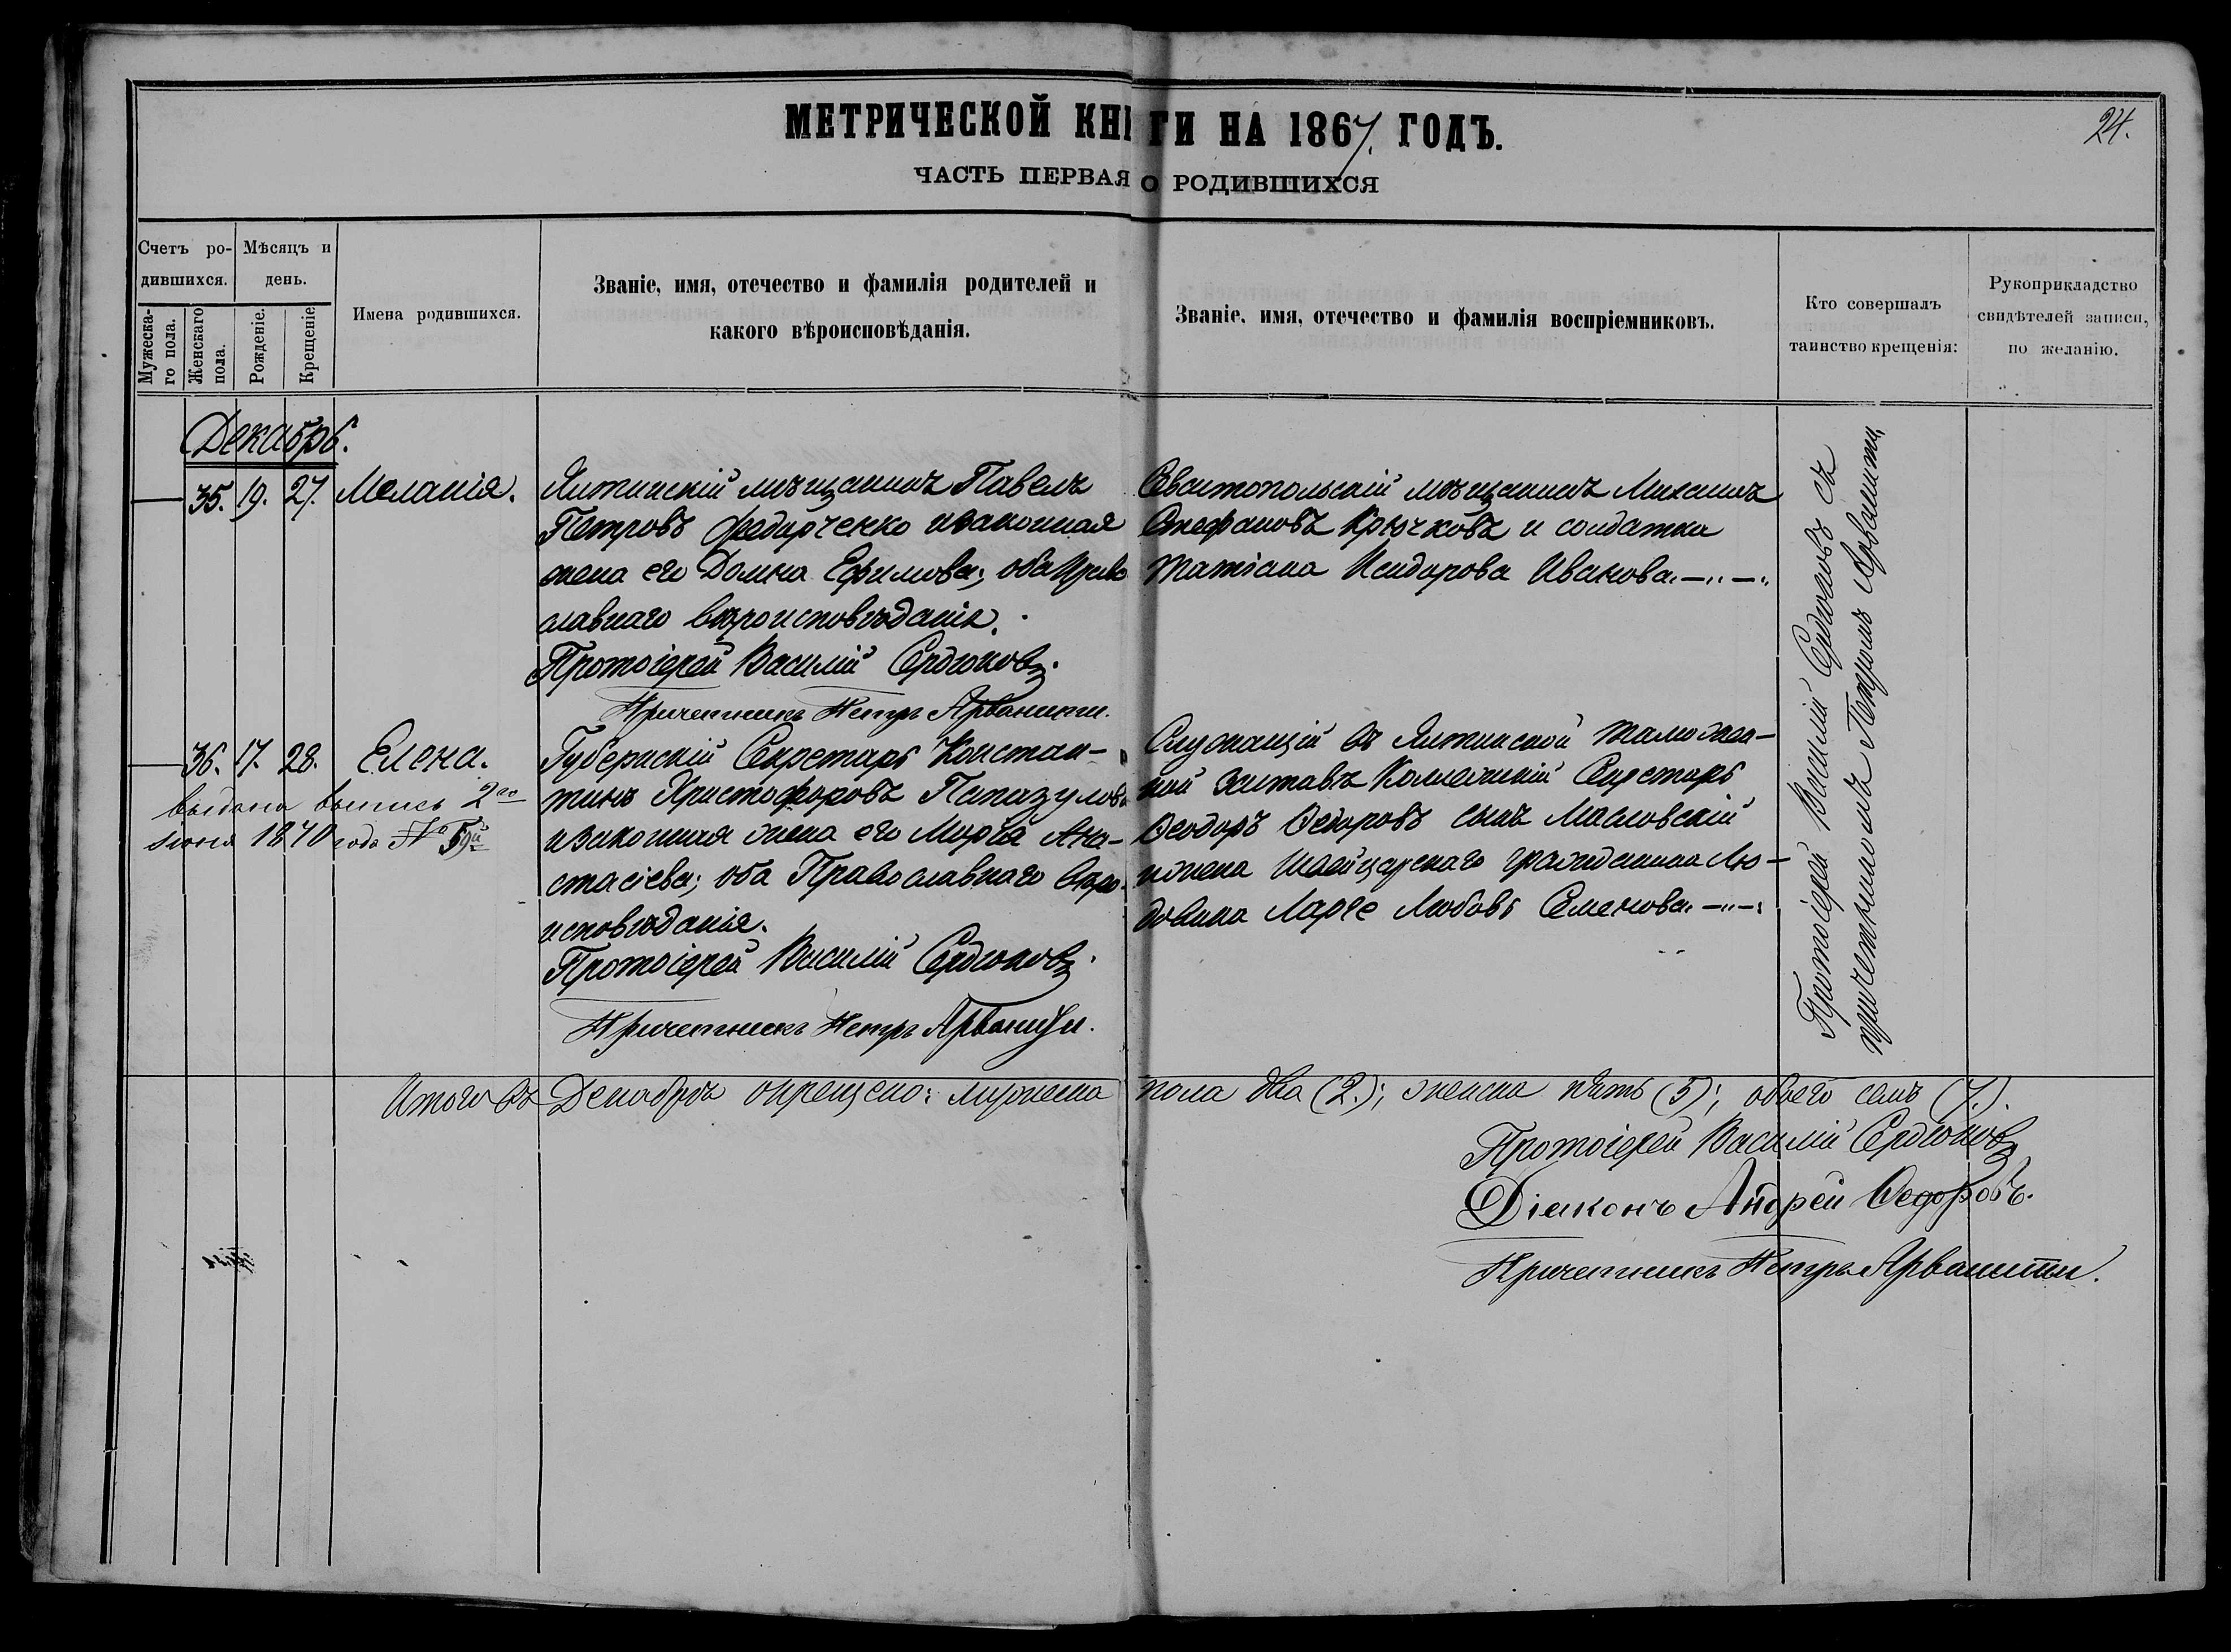 МЕТРИЧЕСКОЙ КНИГИ НА 1867. ГОДЪ.
24.
ЧАСТЬ ПЕРВАЯ О РОДИВШИХСЯ
Счетъ ро-
дившихся.
Мужеска-
го пола.
Женскаго
пола.
Мѣсяцъ и
день.
Рожденіе.
Крещеніе.
Имена родившихся.
Званіе, имя, отечество и фамилія родителей и
какого вѣроисповѣданія.
Званіе, имя, отечество и фамилія воспріемниковъ.
Кто совершалъ
таинство крещенія:
Рукоприкладство
свидѣтелей записи,
по желанію.
Декабрь.
35. 19. 27. Меланія.
Ялтинскій мѣщанинъ Павелъ
Петровъ Федорченко и законная
жена его Домна Ефимова; оба Право
славнаго вѣроисповѣданія.
Протоіерей Василій Сердюковъ.
Причетникъ Петръ Арванити.
Севастопольскій мѣщанинъ Михаилъ
Стефановъ Крючковъ и солдатка
Татіана Исидорова Иванова.
36. 17. 28. Елена.
выдана выпись 2го
іюня 1870 года №
Губернскій Секретарь Констан-
тинъ Христофоровъ Папазуловъ
и законная жена его Марія Ана-
стасіева; оба Православнаго вѣро-
исповѣданія.
Протоіерей Василій Сердюковъ.
Причетникъ Петръ Арванити.
Служащій въ Ялтинской таможен-
ной заставѣ Коллежскій Секретарь
Ѳеодоръ Ѳедоровъ сынъ Масловскій
и жена Швейцарскаго гражданина Лю-
довика Ларге Любовь Семенова.
Протоіерей Василій Сердюковъ съ
причетникомъ Петромъ Арванити.
Итого въ Декабрѣ окрещено: мужеска пола два (2.); женска пять (5); обоего семь (7.).
Протоіерей Василій Сердюковъ
Діаконъ Андрей Ѳедоровъ.
Причетникъ Петръ Арванити.